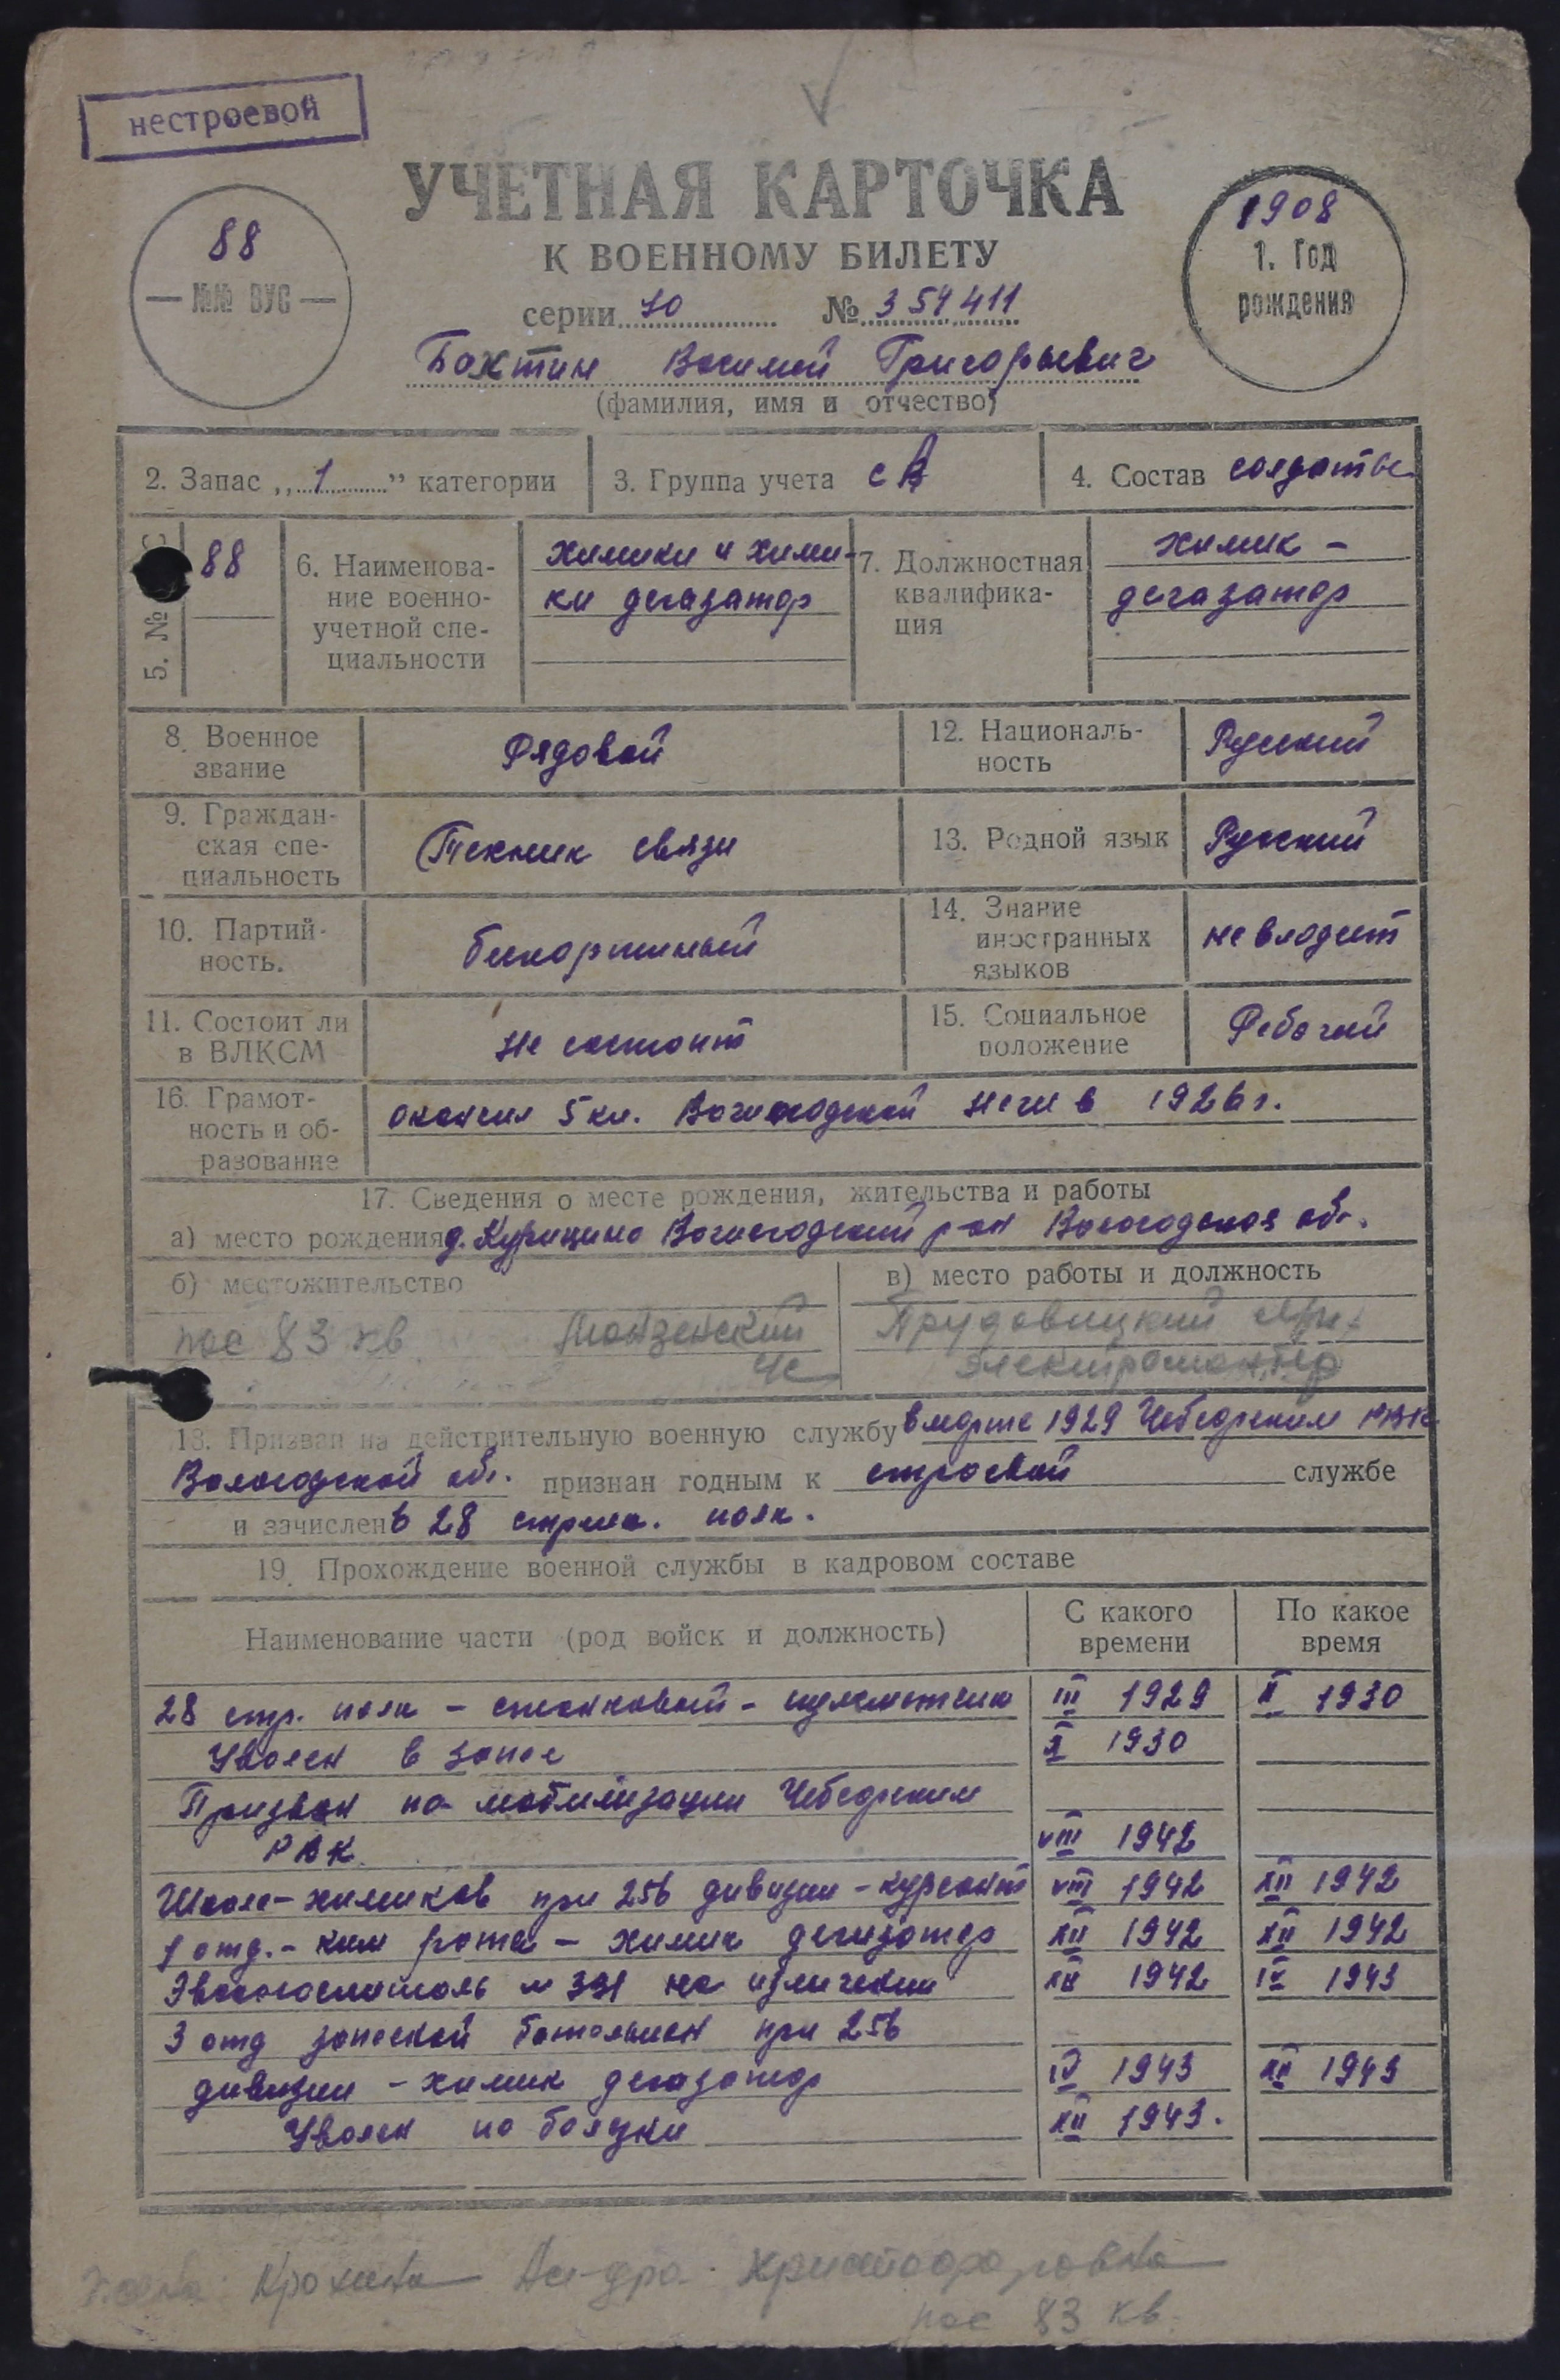 нестроевой
УЧЕТНАЯ КАРТОЧКА
К ВОЕННОМУ БИЛЕТУ
88
— №№ ВУС —
1908
1. Год
рождения
серии № 411
Бахтин Василий Григорьевич
(фамилия, имя и отчество)
2. Запас „1" категории
3. Группа учета СА
4. Состав солдаты
5. №
88
6. Наименова-
ние военно-
учетной спе-
циальности
химики и хими-
ки дегазатор
7. Должностная
квалифика-
ция
химик –
дегазатор
8. Военное
звание
Рядовой
12. Националь-
ность
Русский
9. Граждан-
ская спе-
циальность
Техник связи
13. Родной язык
Русский
10. Партий-
ность.
беспартийный
14. Знание
иностранных
языков
не владеет
11. Состоит ли
в ВЛКСМ
не состоит
15. Социальное
положение
Рабочий
16. Грамот-
ность и об-
разование
окончил 5 кл. в 1926 г.
17. Сведения о месте рождения, жительства и работы
а) место рождения д. Курицино р-он Вологодская обл.
б) местожительство
пос 83 кв Монзенский
в) место работы и должность
электромонтер
18. Призван на действительную военную службу в марте 1929 Чебсарским РВК
Вологодской обл. признан годным к строевой службе
и зачислен в 28 стрелк. полк.
19. Прохождение военной службы в кадровом составе
Наименование части (род войск и должность)
С какого
времени
По какое
время
28 стр. полк – станковый – пулеметчик III 1929 1930
Уволен в запас 1930
Призван по мобилизации Чебсарским
РВК. VIII 1942
Школа – химиков при 256 дивизии – курсант VIII 1942 XII 1942
1 отд. – хим рота – химик дегазатор XII 1942 XII 1942
Эвакогоспиталь на излечении XII 1942 IV 1943
3 отд запасной батальон при 256
дивизии – химик дегазатор IV 1943 XII 1943
Уволен по болезни XII 1943.
Жена: Христофоровна
пос 83 кв.